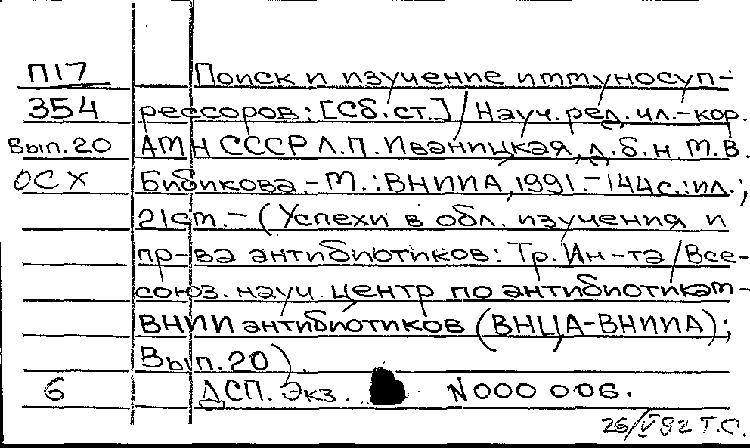 П17 Поиск и изучение иммуносуп-
354 рессоров: [Сб. ст.] / Науч. ред. чл.-кор.
Вып. 20 АМН СССР Л.П. Иваницкая, д.б.н М.В.
ОСХ Бибикова. - М.: ВНИИА, 1991. - 144 с.: ил.;
21 ст. - (Успехи в обл. изучения и
пр-ва антибиотиков: Тр. Ин-та / Все-
союз. науч. центр по антибиотикам -
ВНИИ антибиотиков (ВНЦА-ВНИИА);
Вып. 20).
6 ДСП. Экз. N 000 006.
26/V 92 Т.С.